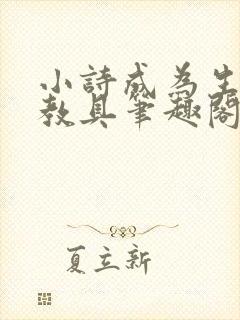 小詩成為生
教具筆趣閣
夏立新